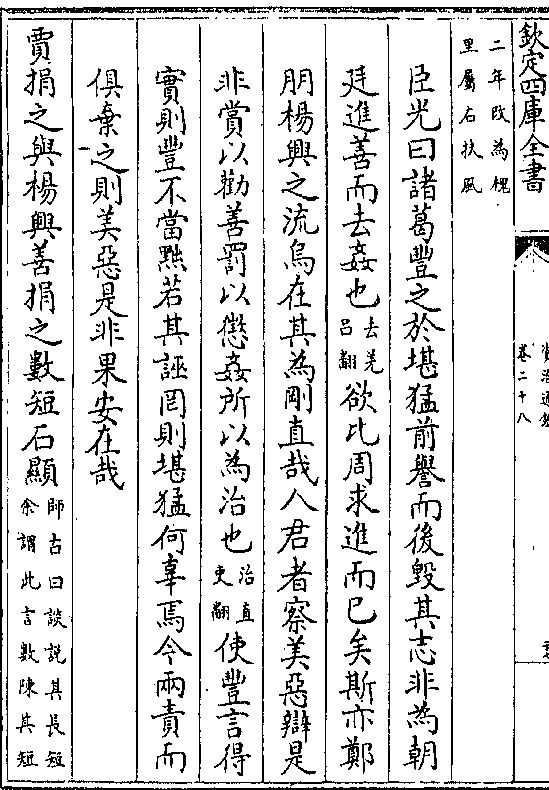 欽定四庫全書
卷二十八
二年改為槐
里屬右扶風
臣光曰諸葛豐之於堪猛前譽而後毀其志非為朝
廷進善而去姦也去羌呂翻欲比周求進而已矣斯亦鄭
朋楊興之流烏在其為剛直哉人君者察美惡辯是
非賞以勸善罰以懲姦所以為治也治直吏翻使豐言得
實則豐不當黜若其誣罔則堪猛何辜焉今兩責而
俱棄之則美惡是非果安在哉
賈捐之與楊興善捐之數短石顯師古曰談說其長短余謂此言數陳其短